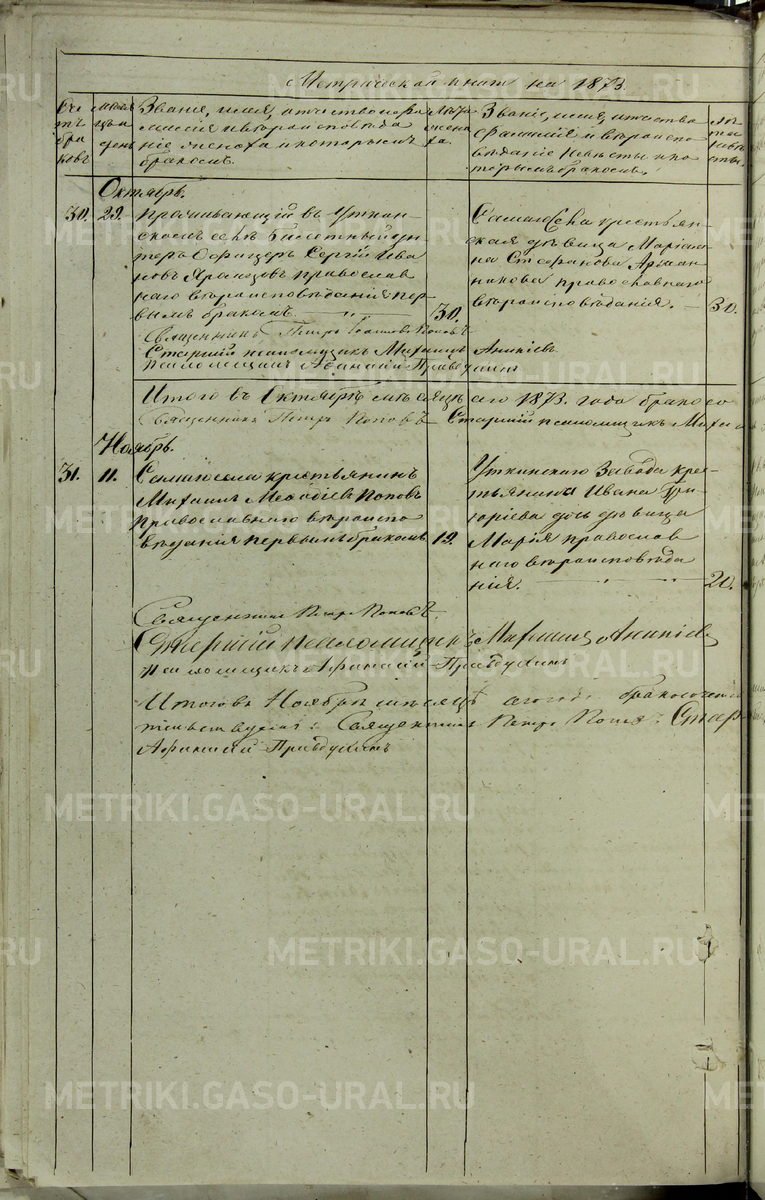 Метрической книги на 1873.
Счетъ браковъ
Месяцъ и день
Званіе, имя, отчество, фа-
милія и вѣроисповѣда
ніе жениха и которымъ
бракомъ.
Лѣта жениха.
Званіе, имя, отчество
фамилія и вѣроиспо-
вѣданіе невѣсты и ко-
торымъ бракомъ.
Лѣта невѣсты.
Октябрь.
30. 29.
Проживающій въ Уткин-
скомъ селѣ билетный ун-
теръ Офицеръ Сергій Ива
новъ православ
наго вѣроисповѣданія пер-
вымъ бракомъ. 30.
Села крестьян-
ская дѣвица Маріам-
на Стефанова
православнаго
вѣроисповѣданія. 30.
Священникъ Петръ Поповъ
Старшій псаломщикъ Михаилъ Аникіевъ
Псаломщикъ Афанасій Правдухинъ
Итого въ Октябрѣ мѣсяцѣ сего 1873. года бракосо
Священникъ Петръ Поповъ Старшій псаломщикъ Михаи
Ноябрь.
31. 11.
села крестьянинъ
Михаилъ Меѳодіевъ Поповъ
православнаго вѣроиспо
вѣданія первымъ бракомъ 19.
Уткинскаго Завода кре-
стьянина Ивана Гри-
горіева дочь дѣвица
Марія православ
наго вѣроисповѣда
нія. 20.
Священникъ Петръ Поповъ.
Старшій псаломщикъ Михаилъ Аникіевъ
Псаломщикъ Афанасій Правдухинъ
Итого въ Ноябрѣ мѣсяцѣ сего года бракосочета
Священникъ Петръ Поповъ. Стар
Афанасій Правдухинъ
METRIKI.GASO-URAL.RU